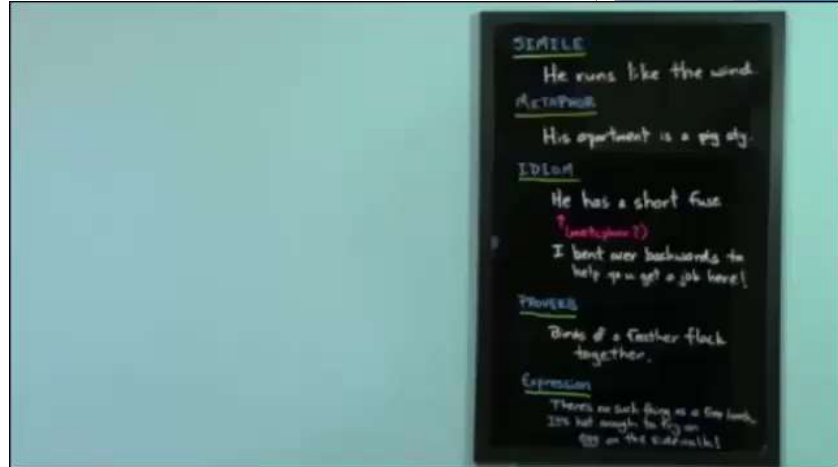 SIMILE
He runs like the wind.
METAPHOR
His apartment is a pig sty.
IDIOM
He has a short fuse
(metaphor?)
I bent over backwards to
help you get a job here!
PROVERB
Birds of a feather flock
together.
Expression
There's no such thing as a free lunch.
It's hot enough to fry an
egg on the sidewalk!